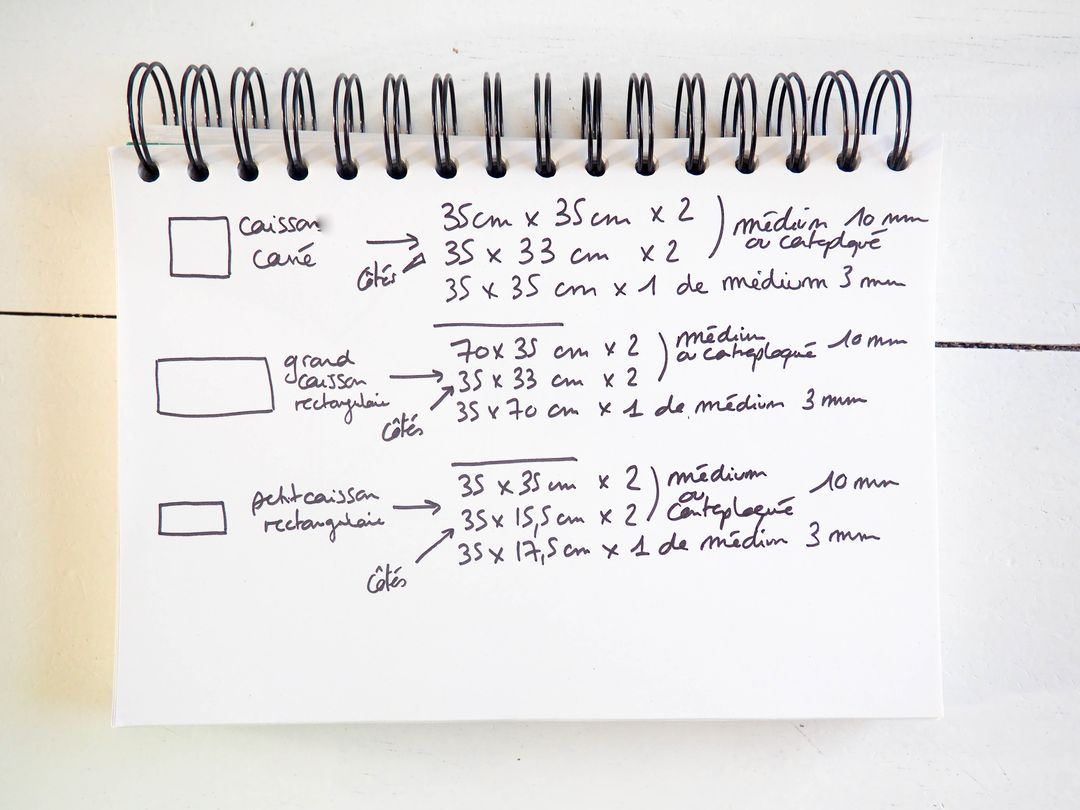 caisson 35cm x 35cm x 2 ) médium 10 mm
carré 35 x 33 cm x 2 ou contreplaqué
côtés 35 x 35 cm x 1 de médium 3 mm
grand 70 x 35 cm x 2 ) médium 10 mm
caisson 35 x 33 cm x 2 ou contreplaqué
rectangulaire 35 x 70 cm x 1 de médium 3 mm
côtés
petit caisson 35 x 35 cm x 2 ) médium 10 mm
rectangulaire 35 x 15,5 cm x 2 ou contreplaqué
35 x 17,5 cm x 1 de médium 3 mm
côtés